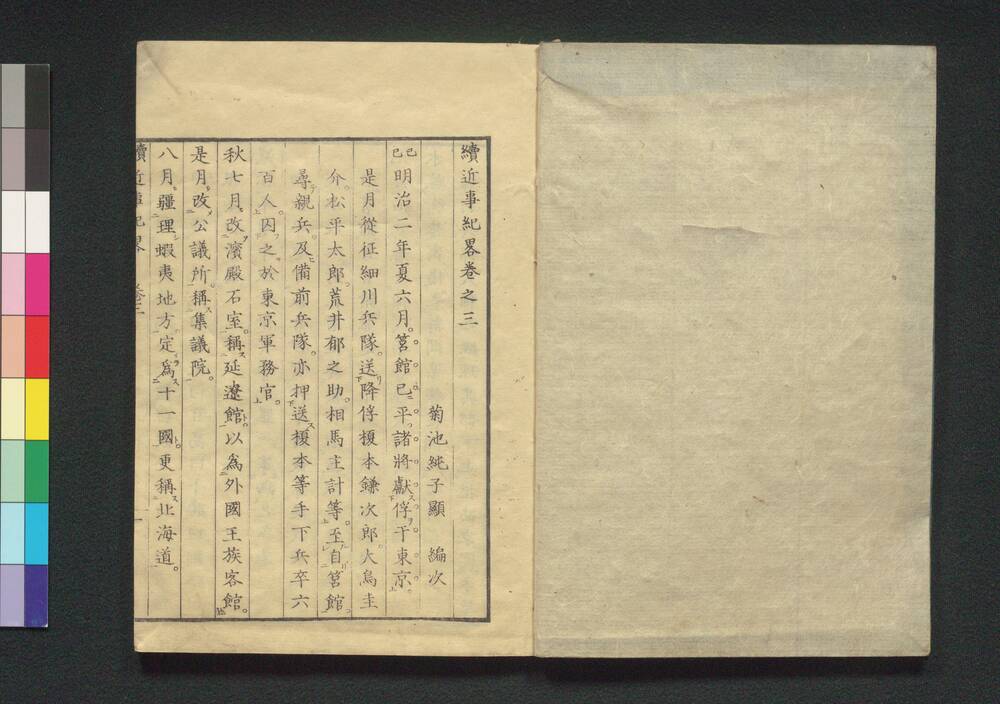 續近事紀畧卷之三
菊池純子顯 編次
己巳明治二年夏六月。筥館已平。諸將獻俘于東京。
是月從征細川兵隊。送降俘榎本鎌次郎。大鳥圭
介。松平太郎。荒井郁之助。相馬主計等。至自筥館。
尋親兵。及備前兵隊。亦押送榎本等手下兵卒六
百人。囚之於東京軍務官。
秋七月。改濱殿石室。稱延遼館。以為外國王族客館。
是月。改公議所。稱集議院。
八月。疆理蝦夷地方。定為十一國。更稱北海道。
續近事紀畧